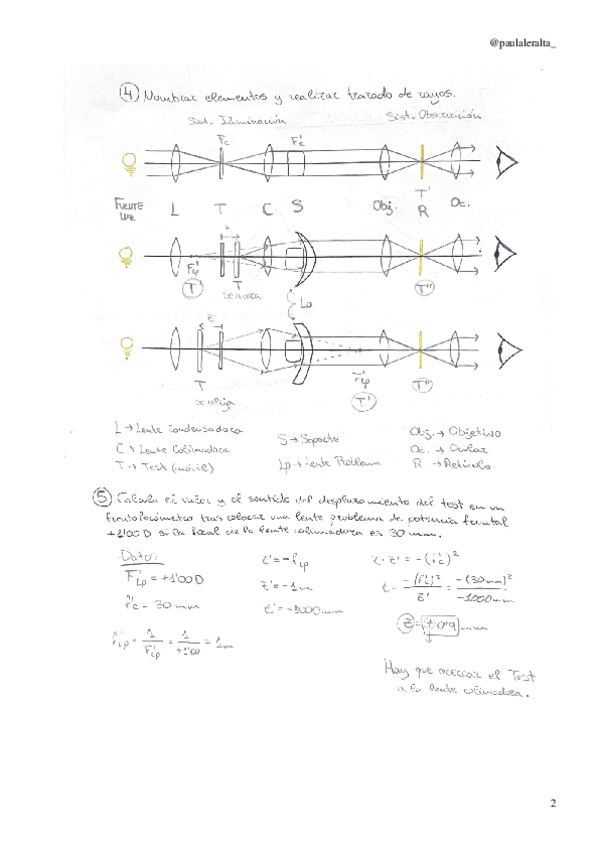 @paulaleralta_
④ Nombrar elementos y realizar trazado de rayos.
Sist. Iluminación Sist. Observación
Fc F'c
T'
FUENTE LUZ L T C S Obj. R Oc.
z
F'Lp
T' T T''
se aleja
Lp
z
F'Lp
T T' T''
L → Lente Condensadora
C → Lente Colimadora
T → Test (móvil)
S → Soporte
Lp → Lente Problema
Obj. → Objetivo
Oc. → Ocular
R → Retículo
⑤ Calcula el valor y el sentido del desplazamiento del test en un
frontofocómetro tras colocar una lente problema de potencia frontal
+1'00 D si la focal de la lente colimadora es 30 mm.
Datos
F'Lp = +1'00 D
f'c = 30 mm
f'Lp = 1/F'Lp = 1/+1'00 = 1m
z' = -f'Lp
z' = -1m
z' = -1000 mm
z · z' = -(f'c)²
z = -(f'c)²/z' = -(30mm)²/-1000mm
z = +0'9 mm
Hay que acercar el Test
a la lente colimadora.
2